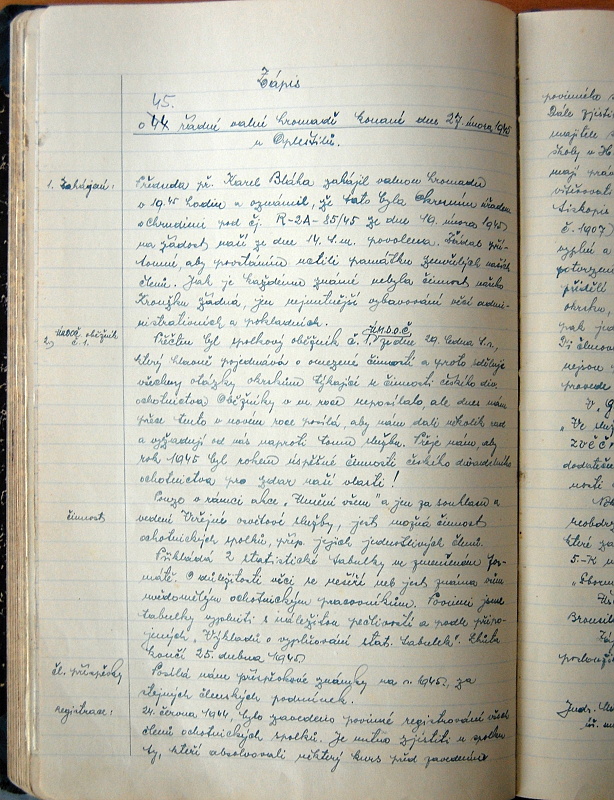 Zápis
45.
o 44 řádné valné hromadě konané dne 27. února 1945
u Opletištilů.
1. Zahájení: Předseda př. Karel Bláha zahájil valnou hromadu
v 19.45 hodin a oznámil, že tato byla Okresním úřadem
v Chrudimi pod čj. R-2A-85/45 ze dne 19. února 1945
na žádost naší ze dne 14. t.m. povolena. Žádal pří-
tomné, aby povstáním uctili památku zemřelých našich
členů. Jak je každému známé nebyla činnost našeho
Kroužku žádná, jen nejnutnější vybavování věcí admi-
nistrativních a pokladních.
2.) ÚMDOČ oběžník č. 1. Přečten byl spolkový oběžník č. 1. Ú.M.D.O.Č. ze dne 29. ledna t.r.,
který hlavně pojednává o omezené činnosti a proto sděluje
všechny otázky okrskům týkající se činnosti českého div.
ochotnictva. Oběžníky v m. roce neposílalo, ale dnes nám
přece tento v novém roce posílá, aby nám dali několik rad
a vyžadují od nás naproti tomu službu. Přeje nám, aby
rok 1945 byl rokem úspěšné činnosti českého divadelního
ochotnictva pro zdar naší vlasti!
činnost Pouze v rámci akce „Umění všem" a jen za souhlasu a
vedení Veřejné osvětové služby, jest možná činnost
ochotnických spolků, příp. jejich jednotlivých členů.
Přikládá 2 statistické tabulky ve zmenšeném for-
mátě. O důležitosti věci se nešíří neb jest známa všem
uvědomělým ochotnickým pracovníkům. Povinni jsme
tabulky vyplniti s náležitou pečlivostí a podle připo-
jených „Výkladů o vyplňování stat. tabulek". Lhůta
končí 25. dubna 1945.
čl. příspěvky Posílá nám příspěvkové známky na r. 1945, za
stejných členských podmínek.
registrace: 24. června 1944, bylo zavedeno povinné registrování všech
členů ochotnických spolků. Je nutno zjistiti u spolku
ty, kteří absolvovali některý kurs před zavedením
povinného
Dále zjisti
majitele
školy v H
mají prá
č. 1907)
okrsku,
pak jed
nejsou
provede
V „
„Ve slu
zvěčn
dodateč
nosti
které za
5.-K
Bronisl